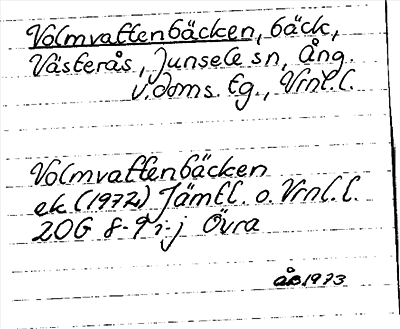 Volmvattenbäcken, bäck,
Västerås, Junsele sn, Ång.
v. doms. tg., Vrnl. l.
Volmvattenbäcken
ek (1972) Jämtl. o. Vrnl. l.
20G 8-9 i-j Övra
åB 1973